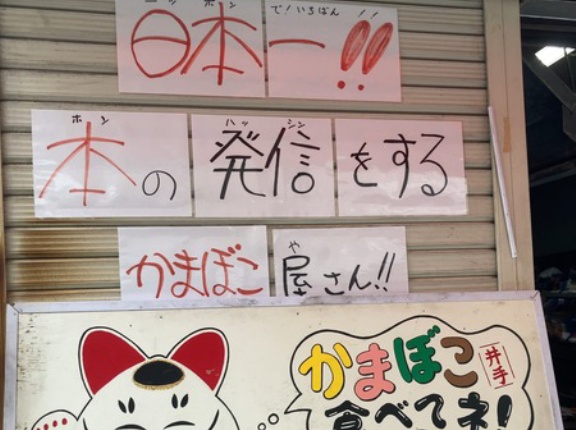 ニッ ポン で!いちばん!!
日本一!!
ホン ハッ シン
本の発信をする
や
かまぼこ屋さん!!
かまぼこ 井手
食べてネ!